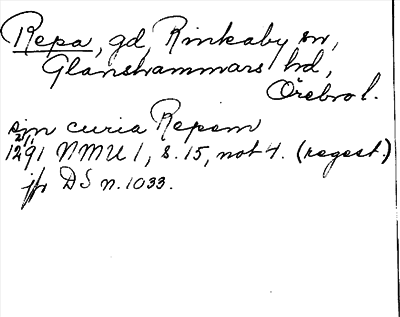 Repa, gd, Rinkaby sn,
Glanshammars hd,
Örebro l.
curia Repom
1291 NMU 1, s. 15, not 4. (regest.)
jfr DS n. 1033.